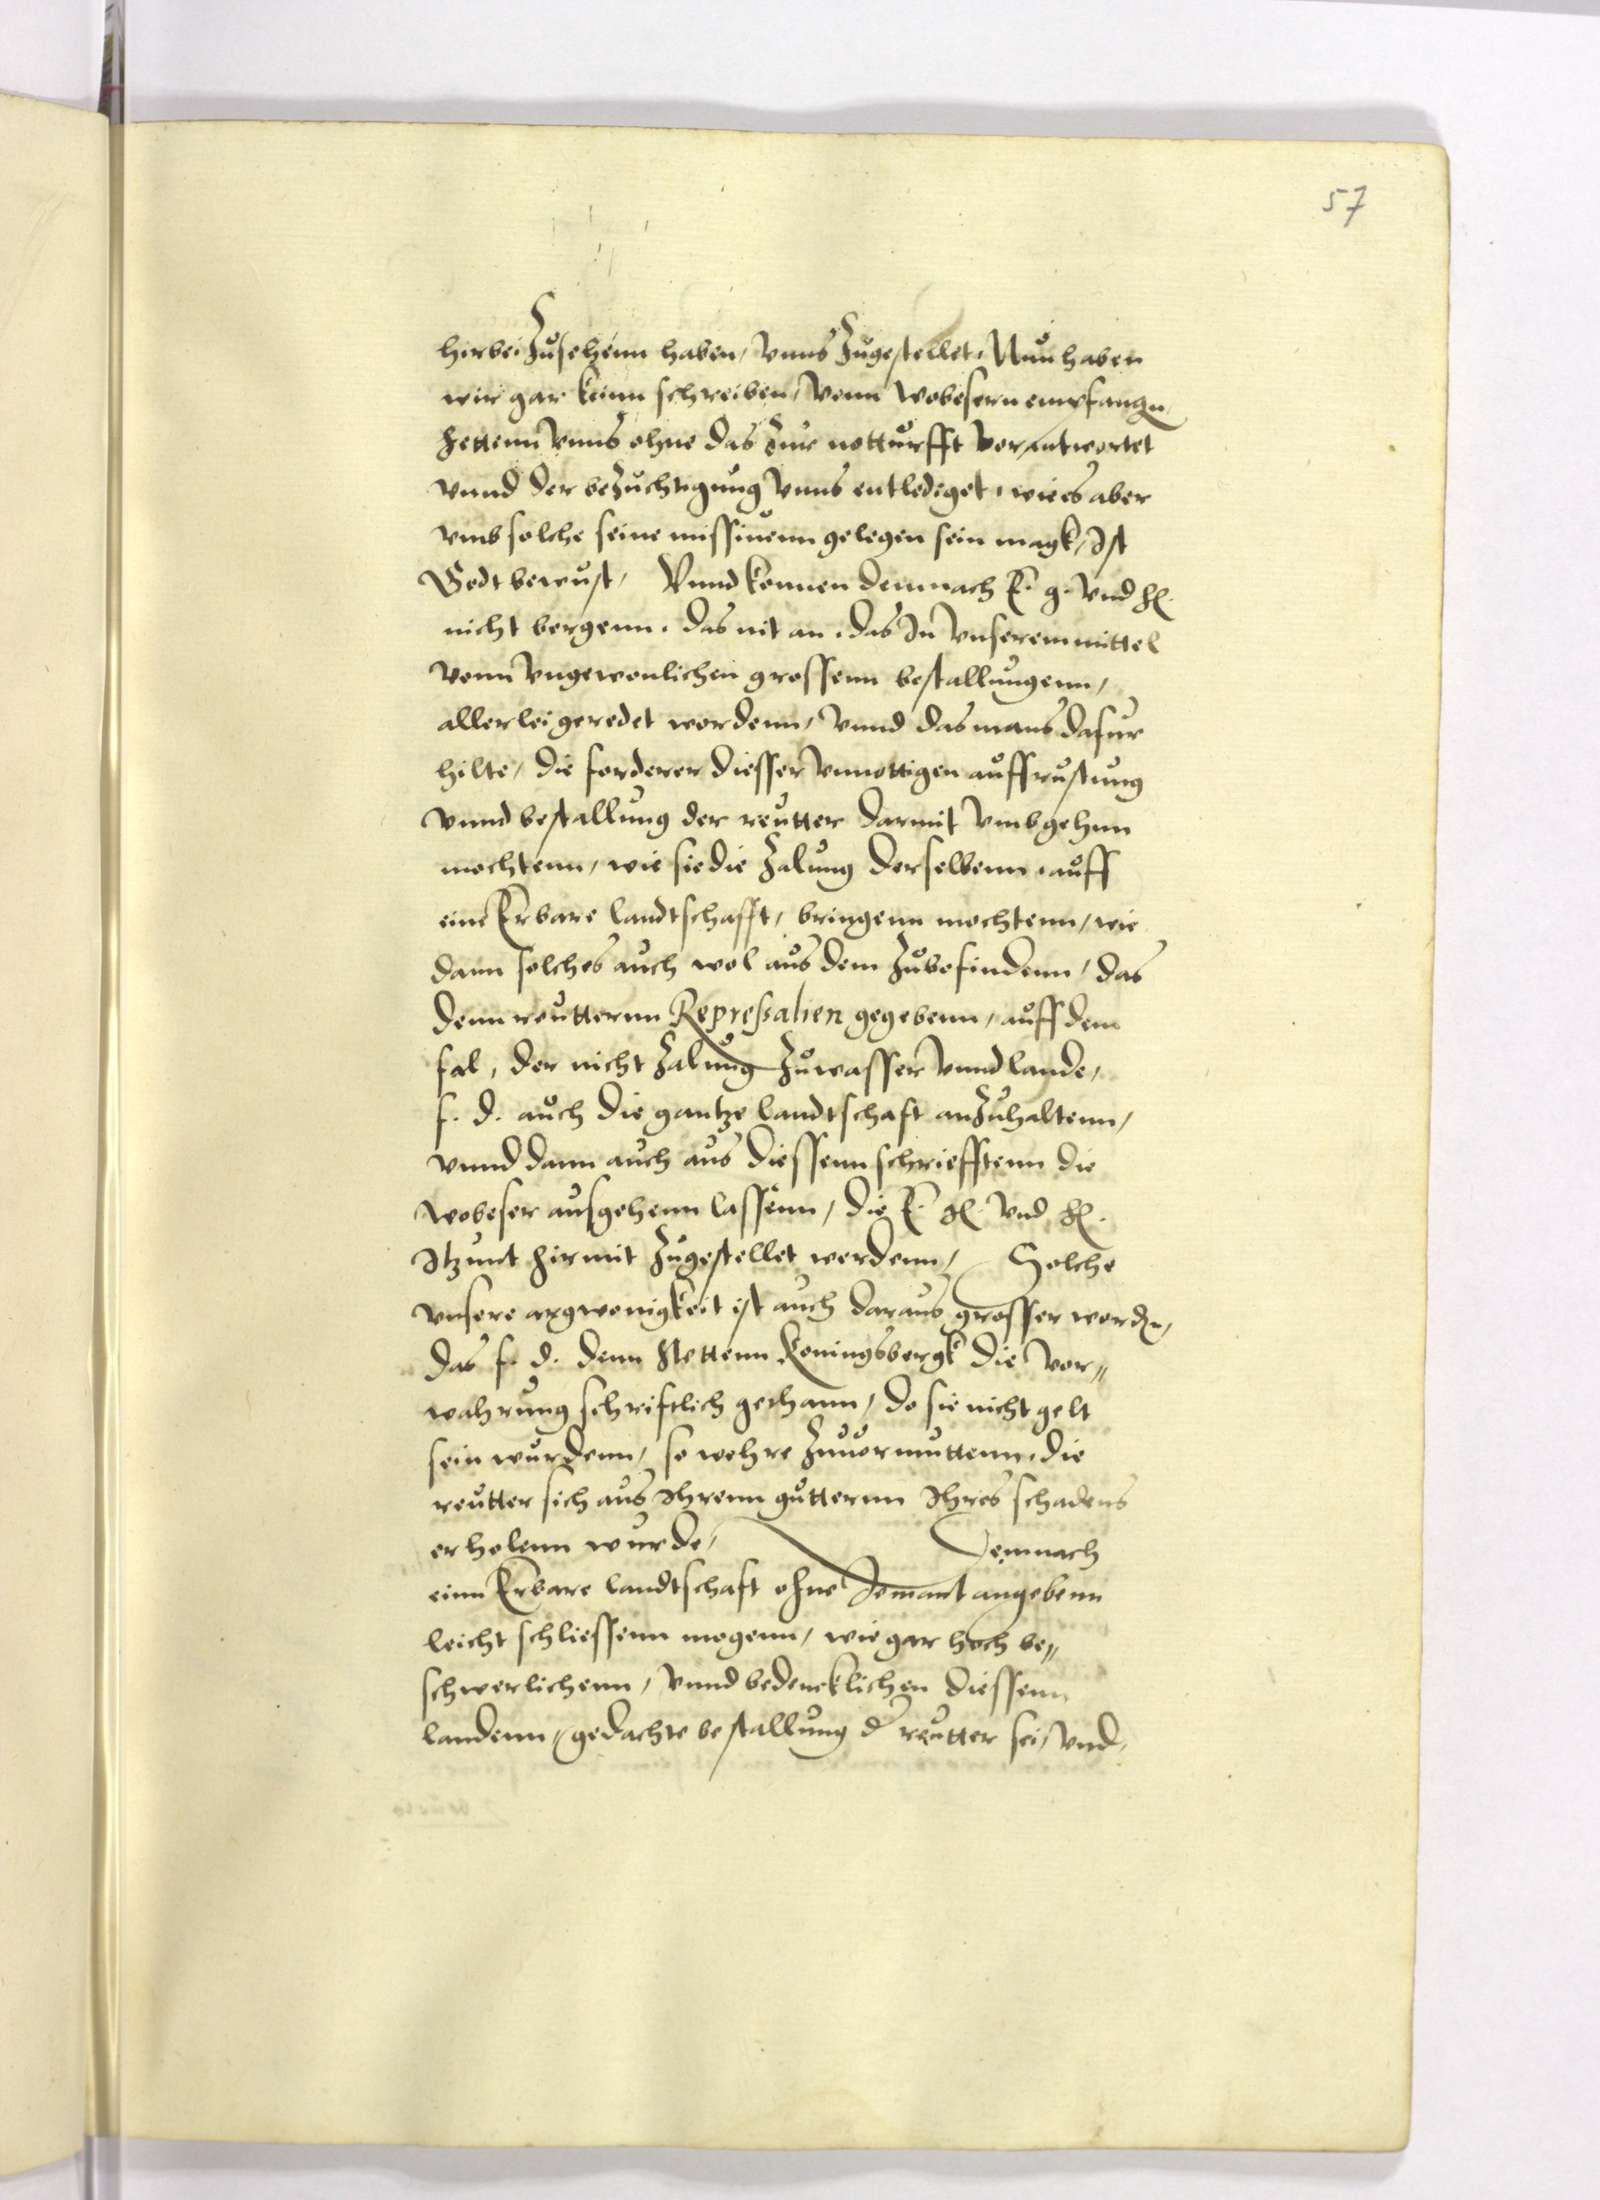 57
hirbei Zusehenn haben, vnns Zugestellet, Nun haben
wir gar keinn schreiben, vonn Wobesern empfangn,
hettenn vnns ohne das Zur notturfft vorantwortet
vnnd der beZuchtigung vnns entlediget, wie es aber
vmb solche seine missiuenn gelegen sein magk, Ist
Godt bewust, Vnnd konnen demnach E. g. vnd hl.
nicht bergenn, das nit an, das In vnserem mittel
vonn vngewonlichen grossenn bestallungenn,
allerlei geredet wordenn, vnnd das mans dafur
hilte, die forderer diesser vnnottigen auffrustung
vnnd bestallung der reutter darmit vmbgehnn
mochtenn, wie sie die Zalung derselbenn, auff
eine Erbare landtschafft, bringenn mochtenn, wie
dann solches auch wol aus dem Zubefindenn, das
denn reutternn Repressalien gegebenn, auff dem
fal, der nicht Zalung Zu wasser vnnd lande,
f. d. auch die gantze landtschaft anZuhaltenn,
vnnd dann auch aus diessenn schriefftenn die
Wobeser ausgehenn lassenn, die E. gl. vnd hl.
Itzunt hirmit Zugestellet werdenn, Solche
vnsere argwonigkeit ist auch daraus grosser wordn,
das f. d. denn Stettenn Koningsbergk die vor=
wahrung schriftlich gethann, do sie nicht gelt
sein wurdenn, so wehre Zuuormuttenn, die
reutter sich aus Ihrenn gutternn Ihres schadens
erholenn wurde, Demnach
einn Erbare landtschaft ohne Jemant angebenn
leicht schliessenn mogenn, wie gar hoch be=
schwerlichenn, vnnd bedencklichen diessenn
landenn, gedachte bestallung d reutter sei, vnd